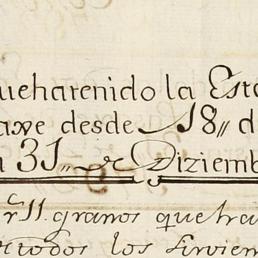 ueharenido la Esta
axe desde 18,, d
31,, de Diziemb
11. granos que ha
todos los sirvien